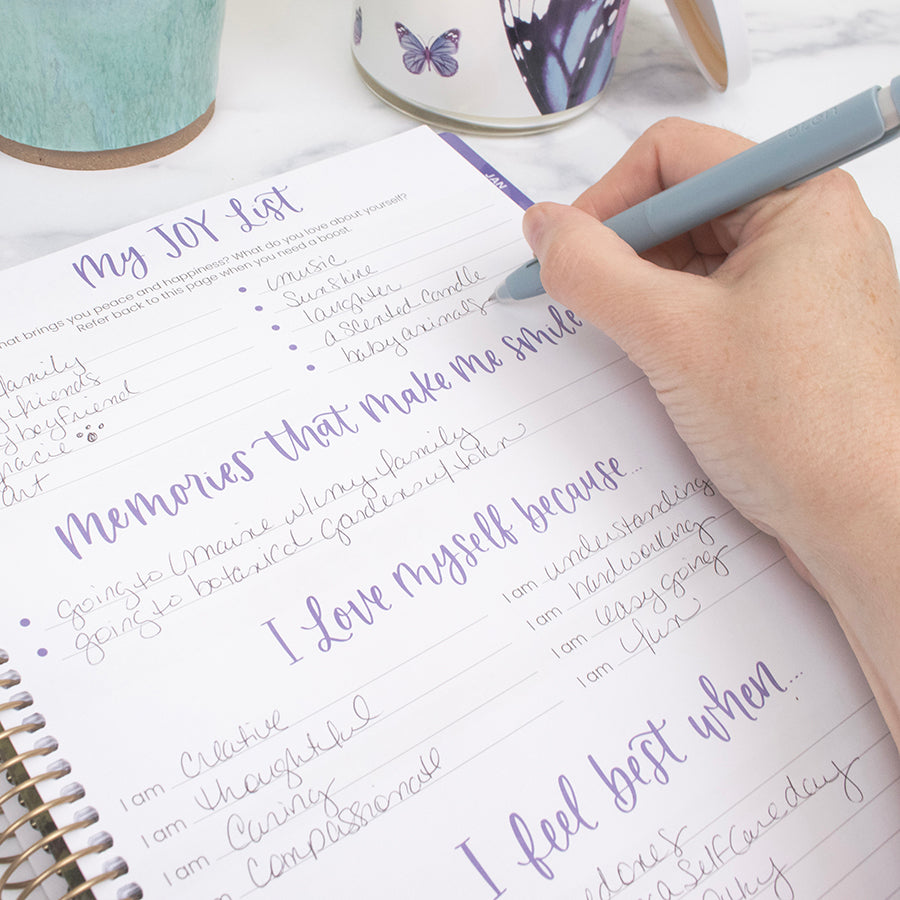 JAN
My JOY List
hat brings you peace and happiness? What do you love about yourself?
Refer back to this page when you need a boost.
family
friends
y boyfriend
gracie
art
music
Sunshine
laughter
a scented candle
baby animals
Memories that make me smile
going to Maine w/my family
going to botanical gardens w/John
I Love myself because...
I am creative
I am thoughtful
I am caring
am compassionate
I am understanding
I am hardworking
I am easy going
I am fun
I feel best when...
a self care day